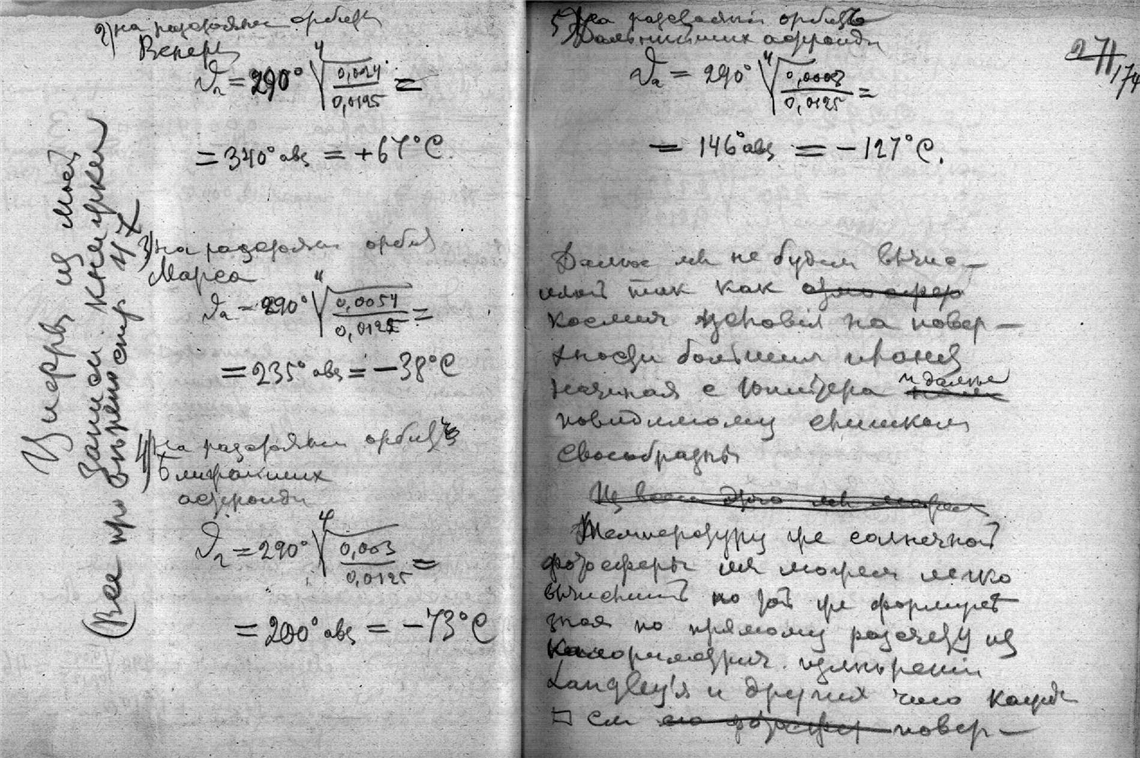 2) на разстоянии орбиты
Венеры
ϑ₂ = 290° ∜(0,024 / 0,0125) =
= 340° абс = +67°C.
3) на разстоянии орбиты
Марса
ϑ₂ = 290° ∜(0,0054 / 0,0125) =
= 235° абс = −38°C
4) на разстоянии орбитъ
ближайших
астероидъ
ϑ₂ = 290° ∜(0,003 / 0,0125) =
= 200° абс = −73°C
Цифры из моей
записн. книжки
(Все про стр. 47
5) на разстоянии орбитъ
Дальнейших астероидъ
ϑ₂ = 290° ∜(0,0008 / 0,0125) =
= 146° абс = −127°C.
271/174
Дальше мы не будем вычис-
лять так как атмосфер
космич условия на повер-
хности больших планет
начиная с Юпитера и дальше
повидимому слишком
своеобразны
Из всего этого мы можем
Температуру же солнечной
фотосферы мы можем легко
вычислить по той же формуле
зная по прямому разсчету из
калориметрич. измерений
Langley'я и других что кажд
□ см его фотосфер повер-